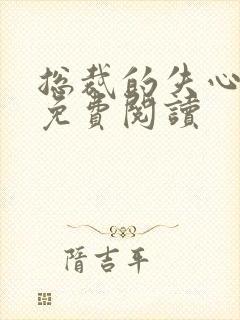 總裁的失心
免費閱讀
隋吉平